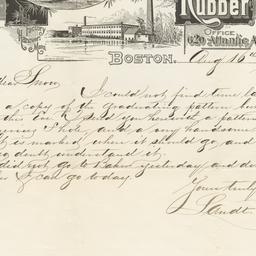 Rubber
OFFICE
620 Atlantic A
BOSTON. Aug 16
dear Snow
I could not find time
a copy of the graduating pattern
this eve I send you herewith a pattern
and a very handsome
is marked where it should go and
no doubt understand it.
did not go to yesterday and
I can go today.
Yours truly